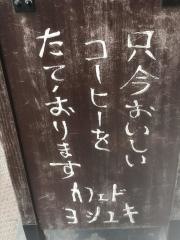 只今おいしい
コーヒーを
たております
カフェド
ヨシユキ